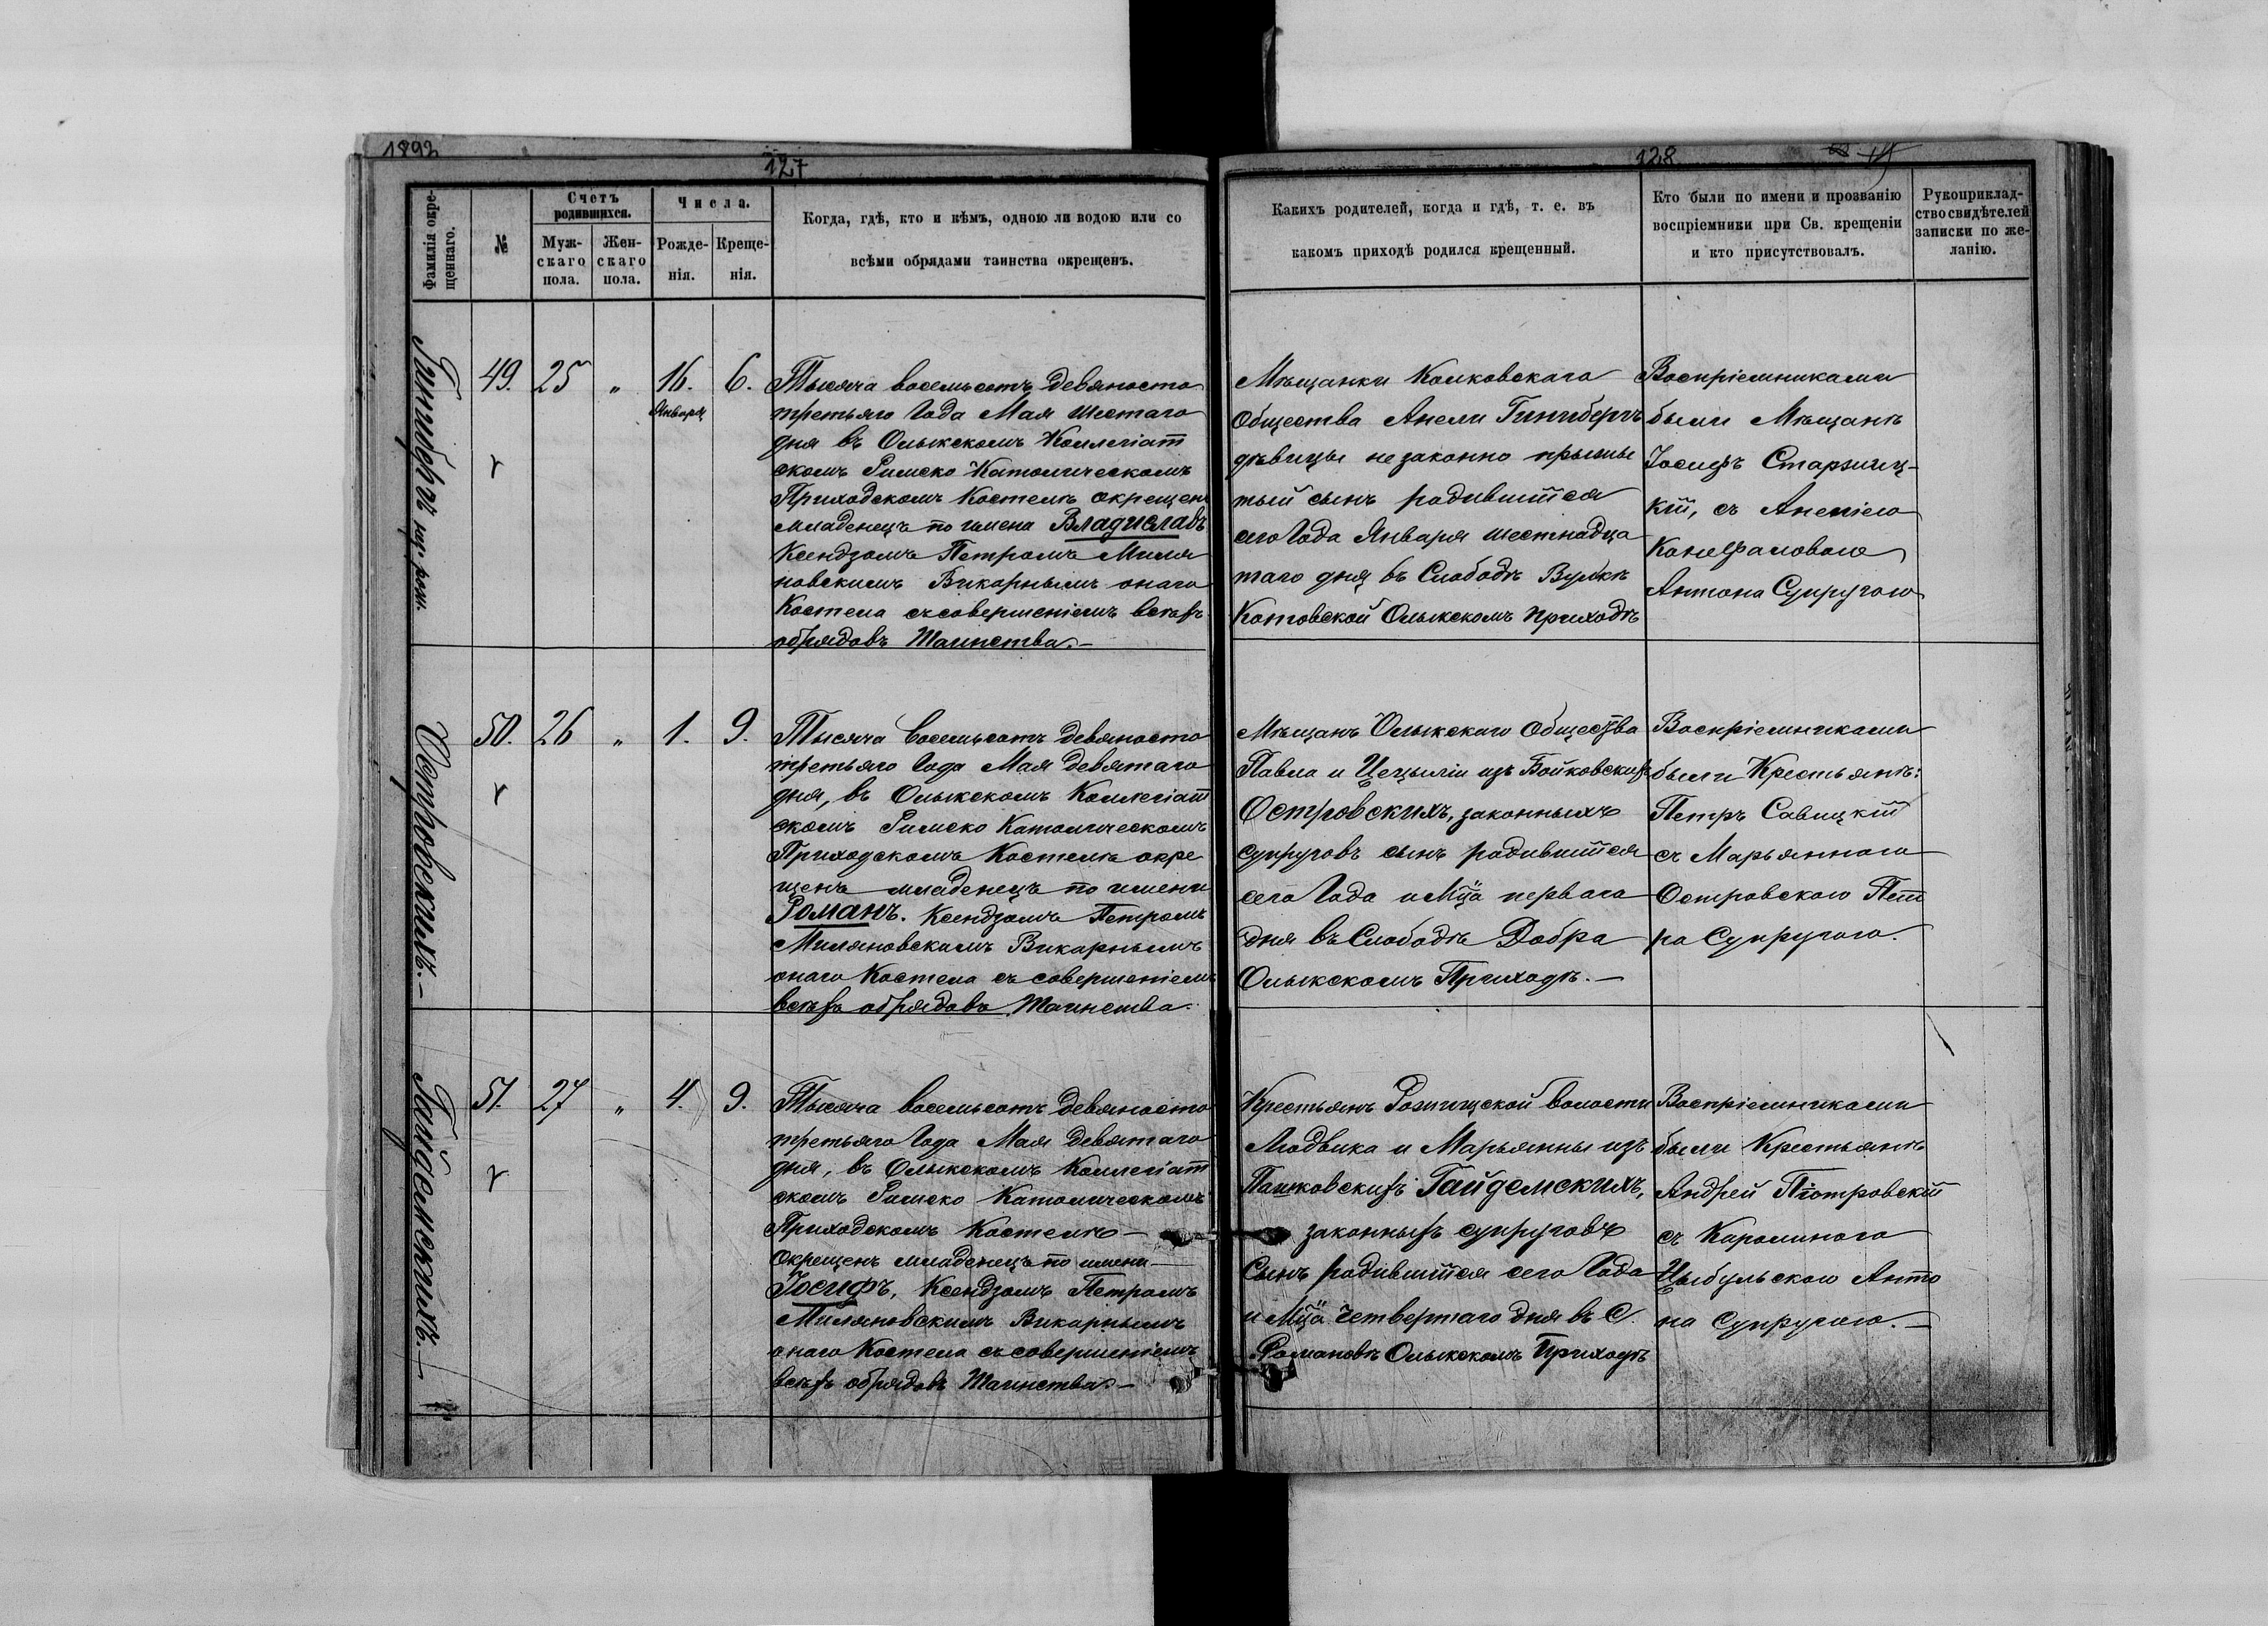 1892
127
Фамилія окре-
щеннаго.
№
Счетъ
родившихся.
Муж-
скаго
пола.
Жен-
скаго
пола.
Числа.
Рожде-
нія.
Креще-
нія.
Когда, гдѣ, кто и кѣмъ, одною ли водою или со
всѣми обрядами таинства окрещенъ.
128
Какихъ родителей, когда и гдѣ, т. е. въ
какомъ приходѣ родился крещенный.
Кто были по имени и прозванію
воспріемники при Св. крещеніи
и кто присутствовалъ.
Рукоприклад-
ство свидѣтелей
записки по же-
ланію.
49.
25
„
16.
Января
6.
Тысяча восемьсотъ девяносто
третьяго Года Мая шестаго
дня въ Олыкскомъ Коллегіат
скомъ Римско Католическомъ
Приходскомъ Костелѣ окрещенъ
младенецъ по имена Владиславъ
Ксендзомъ Петромъ Миля
новскимъ Викарнымъ онаго
Костела съ совершеніемъ всѣхъ
обрядовъ Таинства.—
Мѣщанки Колковскаго
Общества Анели Гинибергъ
дѣвицы незаконно прыжи
тый сынъ родившійся
сего Года Января шестнадца
таго дня въ Слободѣ Вулькѣ
Котовской Олыкскомъ приходѣ
Воспріемниками
были Мѣщанѣ
Іосифъ Старжиц-
кій, съ Анеліею
Антона Супругою
Островскихъ.—
50.
26
„
1.
9.
Тысяча восемьсотъ девяносто
третьяго Года Мая девятаго
дня, въ Олыкскомъ Коллегіат
скомъ Римско Католическомъ
Приходскомъ Костелѣ окре
щенъ младенецъ по имени
Романъ. Ксендзомъ Петромъ
Миляновскимъ Викарнымъ
онаго Костела съ совершеніемъ
всѣхъ обрядовъ Таинства.
Мѣщанъ Олыкскаго Общества
Павла и Цецыліи изъ Бойковскихъ
Островскихъ, законныхъ
супруговъ сынъ родившійся
сего Года и Мца перваго
дня въ Слободѣ Добра
Олыкскомъ Приходѣ.—
Воспріемниками
были Крестьянѣ:
Петръ Савицкій
съ Марьянною
Островскою Пет
ра Супругою.
Гайдемскихъ.—
51.
27
„
4.
9.
Тысяча восемьсотъ девяносто
третьяго Года Мая девятаго
дня, въ Олыкскомъ Коллегіат
скомъ Римско Католическомъ
Приходскомъ Костелѣ—
Окрещенъ младенецъ по имени—
Іосифъ, Ксендзомъ Петромъ
Миляновскимъ Викарнымъ
онаго Костела съ совершеніемъ
всѣхъ обрядовъ Таинства.—
Крестьянъ Рожищской волости
Людвика и Марьянны изъ
Пашковскихъ Гайдемскихъ,
законныхъ супруговъ
Сынъ родившійся сего Года
и Мца четвертаго дня въ С.
Романовѣ Олыкскомъ Приходѣ
Воспріемниками
были Крестьянѣ
Андрей Піотровскій
съ Каролиною
Цыбульскою Анто
на Супругою.—